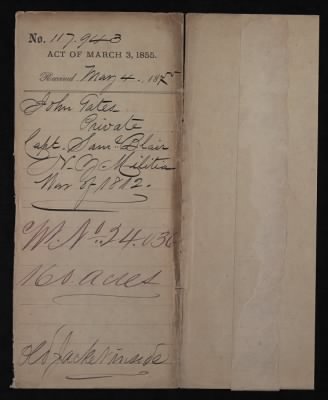 No. 117.943
ACT OF MARCH 3, 1855.
Received May 4, 1855
John Gates
Private
Capt. Saml Blair
N. Y. Militia
War of 1812.
W. No. 24.030
160 acres
Old Jacket inside